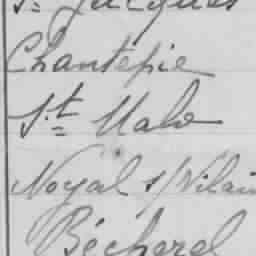 St Jacques
Chantepie
St Malo
Noyal s/Vilain
Bécherel